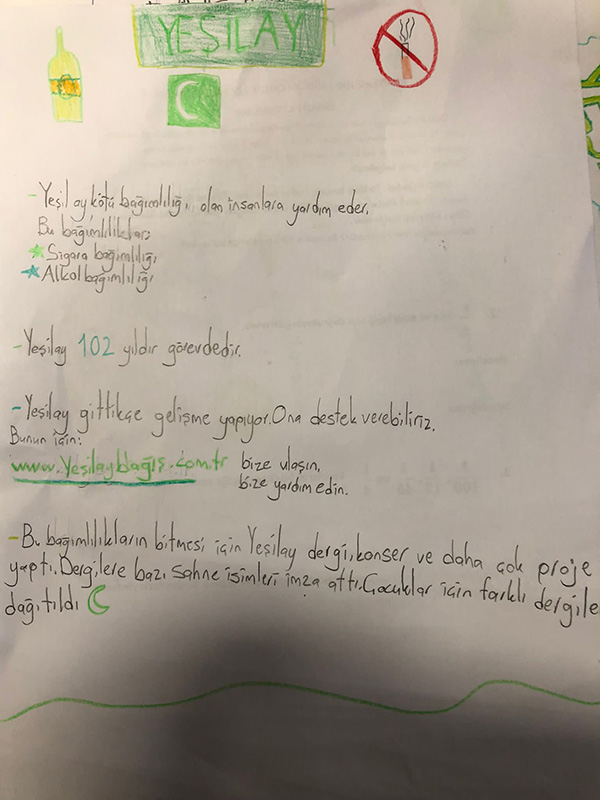 YEŞİLAY
- Yeşilay kötü bağımlılığı olan insanlara yardım eder.
Bu bağımlılıklar;
Sigara bağımlılığı
Alkol bağımlılığı
- Yeşilay 102 yıldır görevdedir.
- Yeşilay gittikçe gelişme yapıyor. Ona destek verebiliriz.
Bunun için:
www.Yeşilaybağış.com.tr bize ulaşın,
bize yardım edin.
- Bu bağımlılıkların bitmesi için Yeşilay dergi, konser ve daha çok proje
yaptı. Dergilere bazı sahne isimleri imza attı. Çocuklar için farklı dergile
dağıtıldı